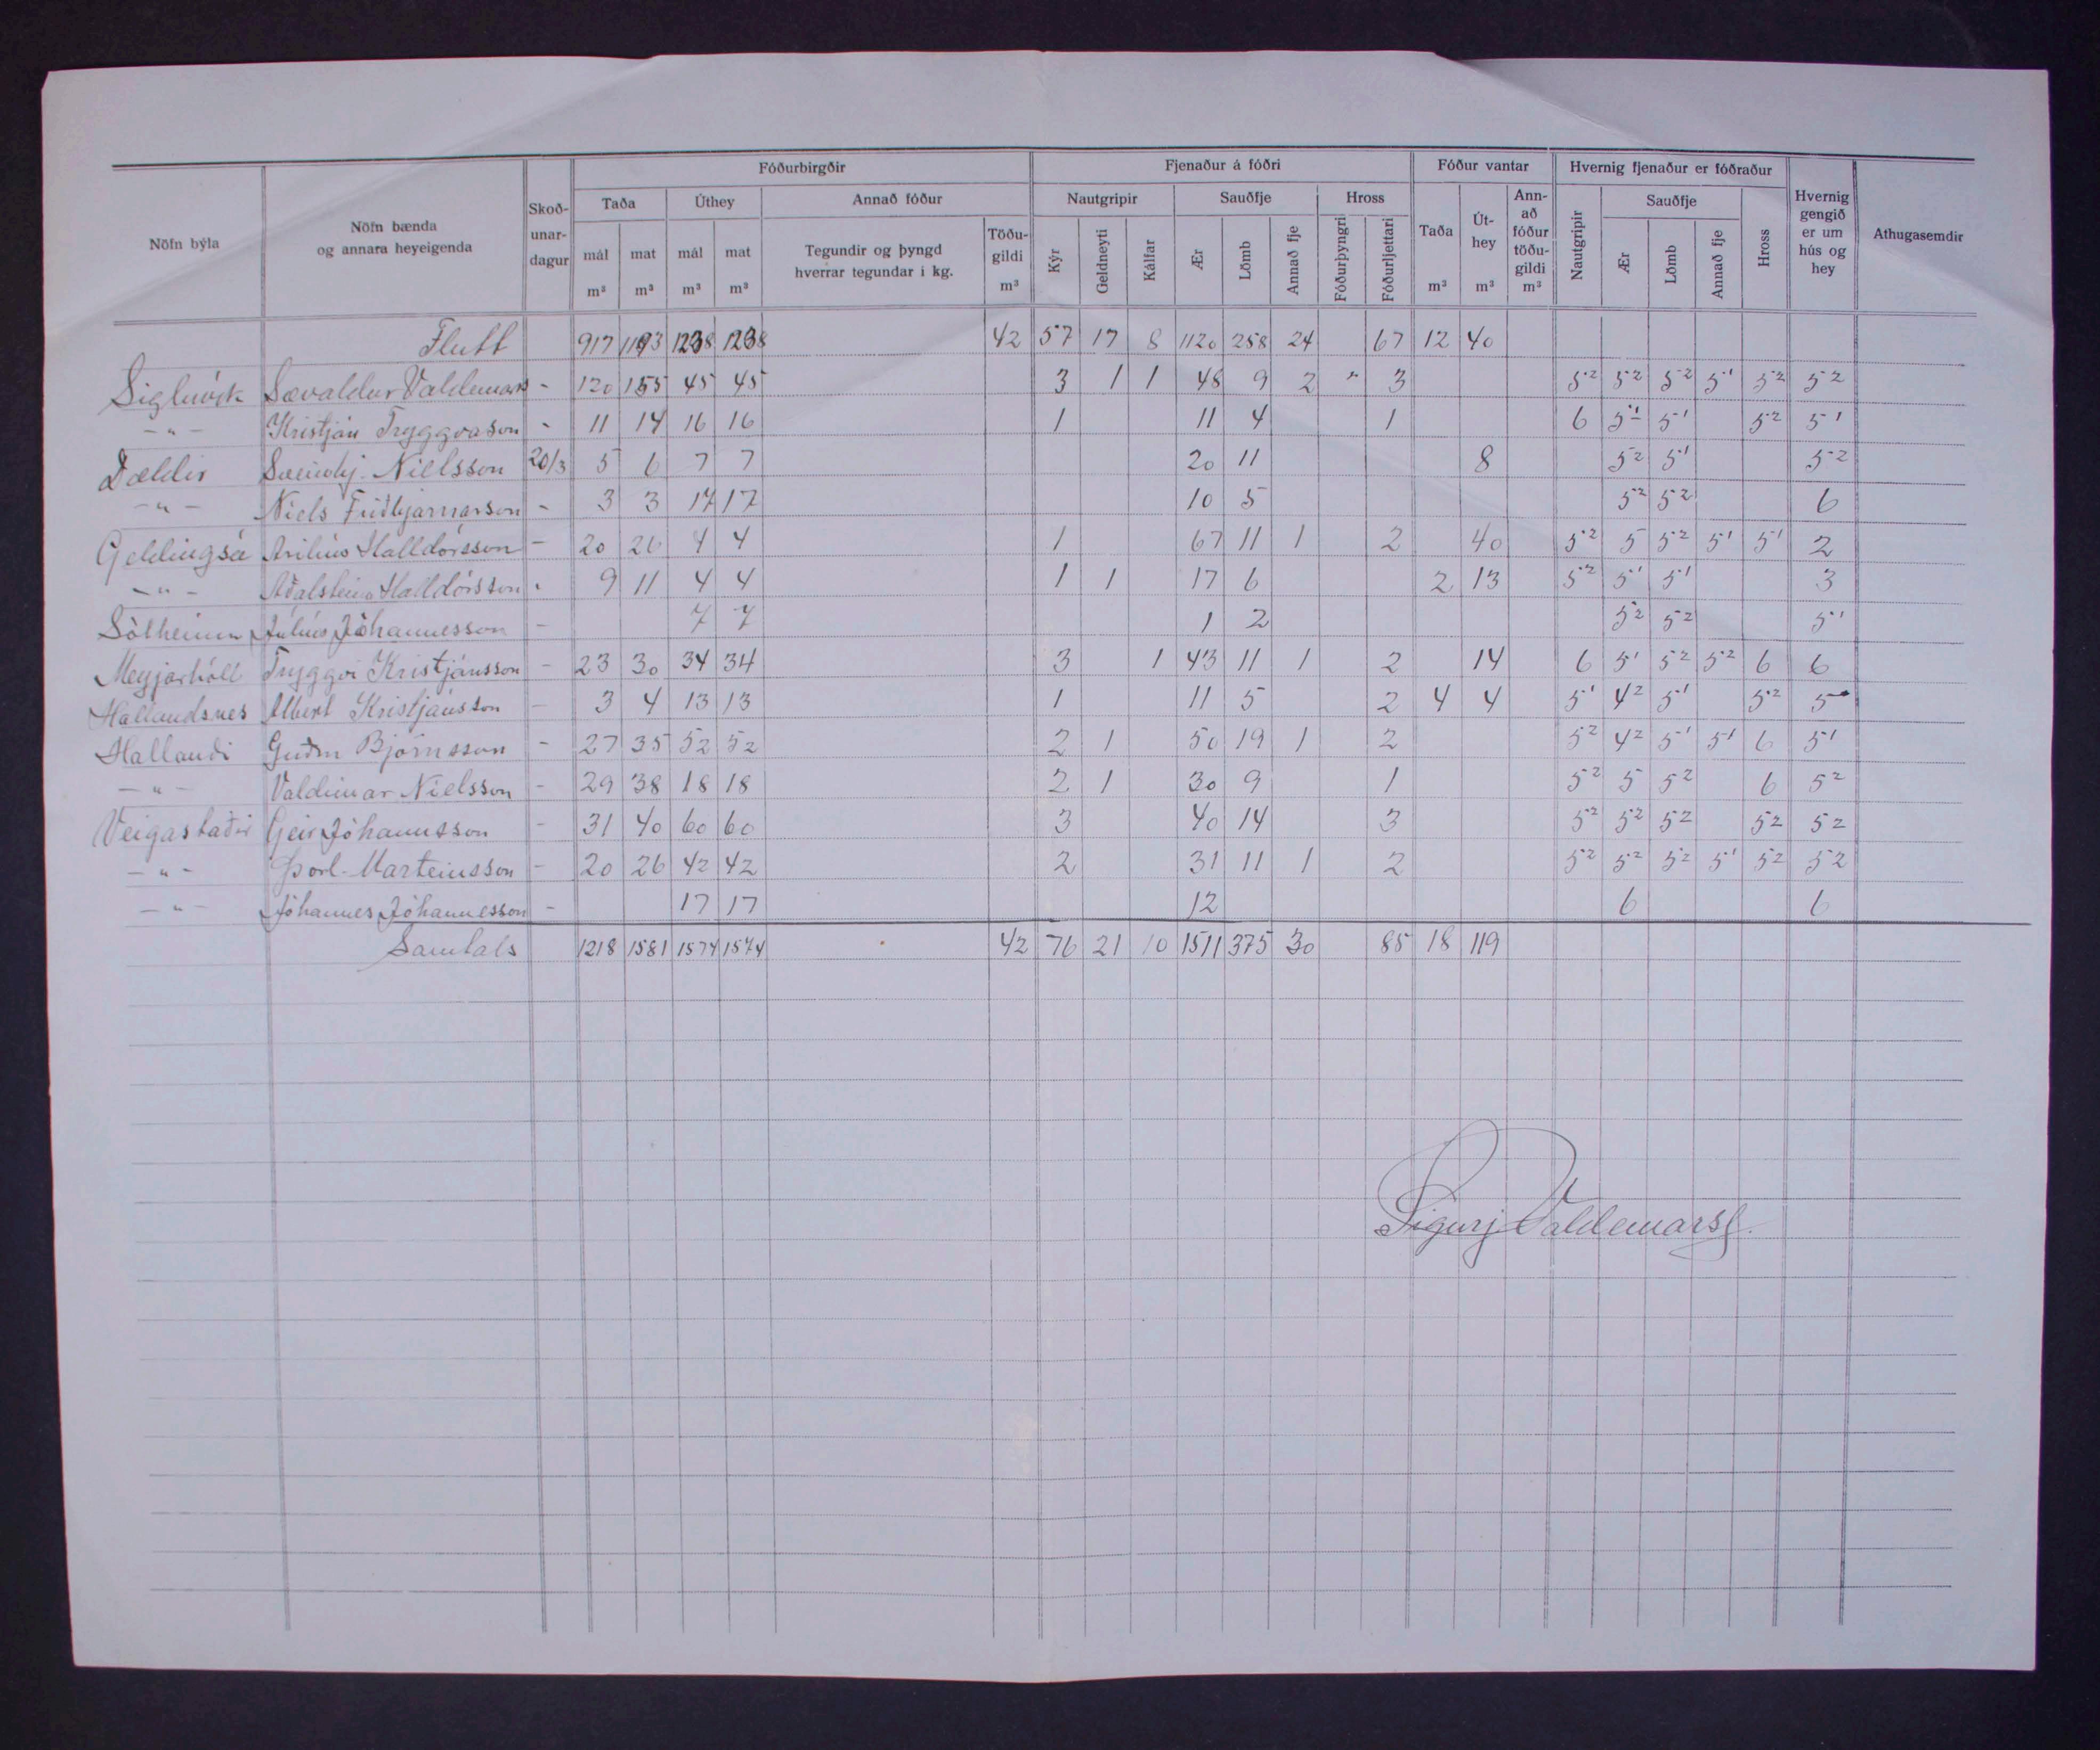 Fóðurbirgðir Fjenaður á fóðri Fóður vantar Hvernig fjenaður er fóðraður
Nöfn býla Nöfn bænda og annara heyeigenda Skoð-unar-dagur Taða Úthey Annað fóður Nautgripir Sauðfje Hross Taða m³ Út-hey m³ Ann-að fóður töðu-gildi m³ Nautgripir Sauðfje Hross Hvernig gengið er um hús og hey Athugasemdir
mál m³ mat m³ mál m³ mat m³ Tegundir og þyngd hverrar tegundar í kg. Töðu-gildi m³ Kýr Geldneyti Kálfar Ær Lömb Annað fje Fóðurþyngri Fóðurljettari Ær Lömb Annað fje
Flutt 917 1193 1238 1238 42 57 17 8 1120 258 24 67 12 40
Sigluvík Sævaldur Valdemars - 120 155 45 45 3 1 1 48 9 2 " 3 5² 5² 5² 5¹ 5² 5²
-"- Kristján Tryggvason - 11 14 16 16 1 11 4 1 6 5¹ 5¹ 5² 5¹
Dældir Sveinbj. Níelsson 20/3 5 6 7 7 20 11 8 5² 5¹ 5²
-"- Níels Friðbjarnarson - 3 3 17 17 10 5 5² 5² 6
Geldingsá Árelíus Halldórsson - 20 26 4 4 1 67 11 1 2 40 5² 5 5² 5¹ 5¹ 2
-"- Aðalsteinn Halldórsson - 9 11 4 4 1 1 17 6 2 13 5² 5¹ 5¹ 3
Sólheimar Júlíus Jóhannesson - 7 7 1 2 5² 5² 5¹
Meyjarhóll Tryggvi Kristjánsson - 23 30 34 34 3 1 43 11 1 2 14 6 5¹ 5² 5² 6 6
Hallandsnes Albert Kristjánsson - 3 4 13 13 1 11 5 2 4 4 5¹ 4² 5¹ 5² 5
Hallandi Guðm Björnsson - 27 35 52 52 2 1 50 19 1 2 5² 4² 5¹ 5¹ 6 5¹
-"- Valdimar Níelsson - 29 38 18 18 2 1 30 9 1 5² 5 5² 6 5²
Veigastaðir Geir Jóhannsson - 31 40 60 60 3 40 14 3 5² 5² 5² 5² 5²
-"- Þorl. Marteinsson - 20 26 42 42 2 31 11 1 2 5² 5² 5² 5¹ 5² 5²
-"- Jóhannes Jóhannesson - 17 17 12 6 6
Samtals 1218 1581 1574 1574 42 76 21 10 1511 375 30 85 18 119
Sigurj Valdemarss.